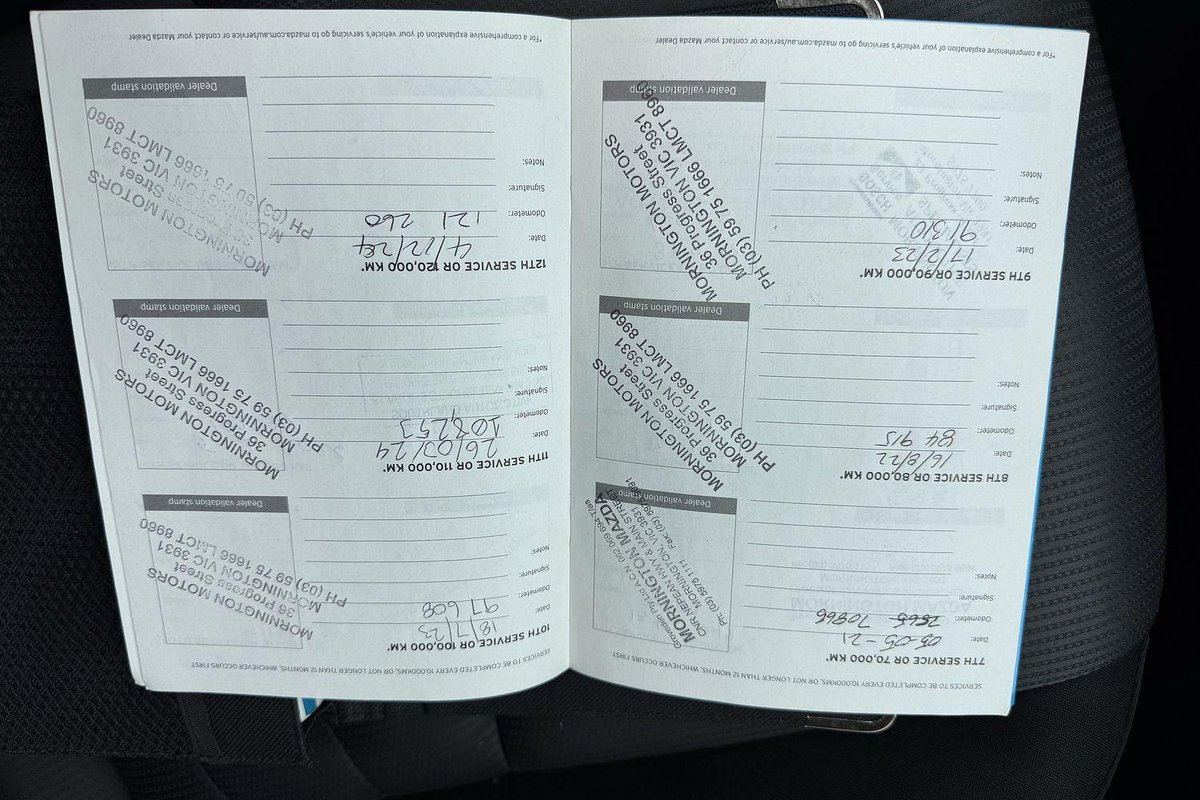 SERVICES TO BE COMPLETED EVERY 10,000KMS, OR NOT LONGER THAN 12 MONTHS, WHICHEVER OCCURS FIRST
7TH SERVICE OR 70,000 KM*
Date: 05-05-21
Odometer: 70866
Signature:
Notes:
Dealer validation stamp
Pty Ltd A.C.N. 052 069 694 T/as
MORNINGTON MAZDA
CNR NEPEAN HWY & MAIN STREET
MORNINGTON, VIC 3931
Ph: (03) 5975 1111 Fax: (03)
8TH SERVICE OR 80,000 KM*
Date: 16/8/22
Odometer: 84 915
Signature:
Notes:
Dealer validation stamp
MORNINGTON MOTORS
36 Progress Street
MORNINGTON VIC 3931
PH (03) 59 75 1666 LMCT 8960
9TH SERVICE OR 90,000 KM*
Date: 17/2/23
Odometer: 91310
Signature:
Notes:
Dealer validation stamp
MORNINGTON MOTORS
36 Progress Street
MORNINGTON VIC 3931
PH (03) 59 75 1666 LMCT 8960
*For a comprehensive explanation of your vehicle's servicing go to mazda.com.au/service or contact your Mazda Dealer
SERVICES TO BE COMPLETED EVERY 10,000KMS, OR NOT LONGER THAN 12 MONTHS, WHICHEVER OCCURS FIRST
10TH SERVICE OR 100,000 KM*
Date: 18/7/23
Odometer: 97 608
Signature:
Notes:
Dealer validation stamp
MORNINGTON MOTORS
36 Progress Street
MORNINGTON VIC 3931
PH (03) 59 75 1666 LMCT 8960
11TH SERVICE OR 110,000 KM*
Date: 26/03/24
Odometer: 108253
Signature:
Notes:
Dealer validation stamp
MORNINGTON MOTORS
36 Progress Street
MORNINGTON VIC 3931
PH (03) 59 75 1666 LMCT 8960
12TH SERVICE OR 120,000 KM*
Date: 4/12/24
Odometer: 121 260
Signature:
Notes:
Dealer validation stamp
MORNINGTON MOTORS
36 Progress Street
MORNINGTON VIC 3931
PH (03) 59 75 1666 LMCT 8960
*For a comprehensive explanation of your vehicle's servicing go to mazda.com.au/service or contact your Mazda Dealer